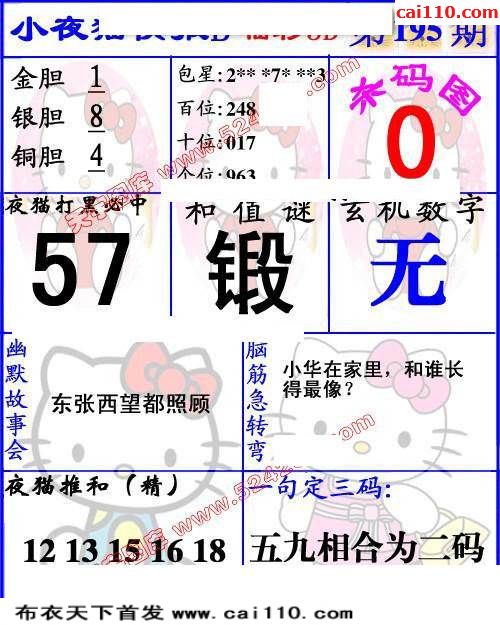 cai110.com
小夜猫
福彩3D
第195期
金胆 1
银胆 8
铜胆 4
包星:2** *7* **3
百位:248
十位:017
个位:963
杀码图
0
夜猫打黑必中
57
和值谜
锻
玄机数字
无
幽默故事会
东张西望都照顾
脑筋急转弯
小华在家里，和谁长
得最像?
夜猫推和（精）
12 13 15 16 18
一句定三码:
五九相合为二码
布衣天下首发 www.cai110.com